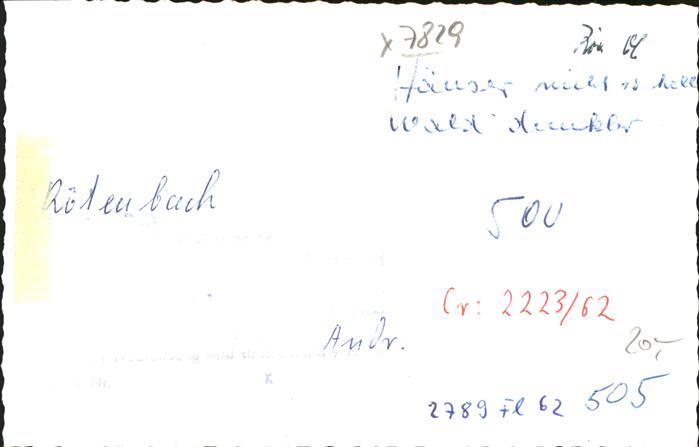 x 7829
Häuser nicht so hell
Wald dunkler
Rötenbach
500
Cr: 2223/62
Andr.
20,-
x
2789 Fl 62 505